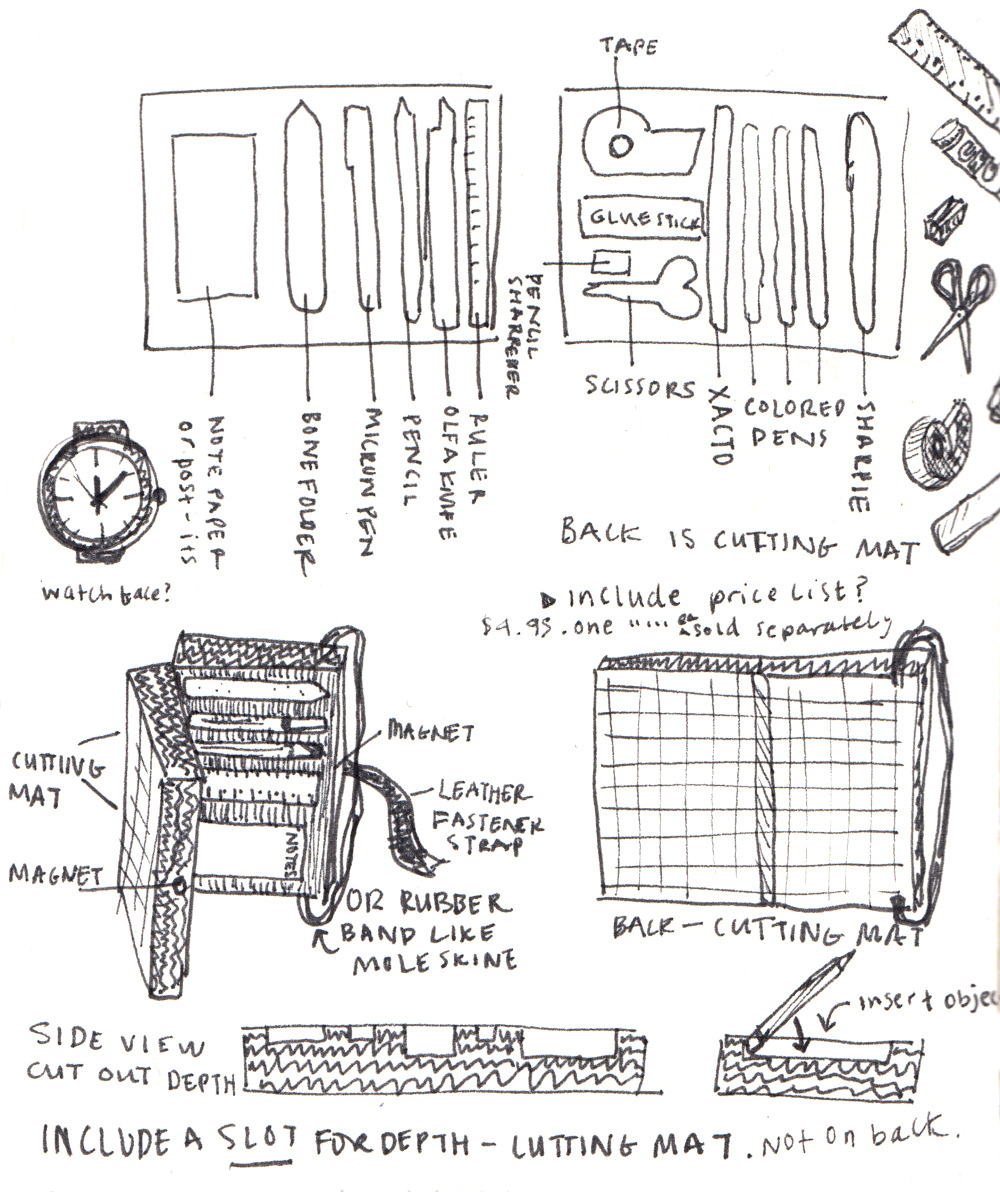 TAPE
GLUE STICK
PENCIL
SHARPENER
SCISSORS
XACTO
COLORED
PENS
SHARPIE
NOTE PAPER
or post-its
BONE FOLDER
MICRON PEN
PENCIL
OLFA KNIFE
RULER
BACK IS CUTTING MAT
watch face?
include price list?
$4.95. one """ ea sold separately
CUTTING
MAT
MAGNET
MAGNET
LEATHER
FASTENER
STRAP
NOTES
OR RUBBER
BAND LIKE
MOLESKINE
BACK - CUTTING MAT
SIDE VIEW
CUT OUT DEPTH
insert objec
INCLUDE A SLOT FOR DEPTH - CUTTING MAT. Not on back.